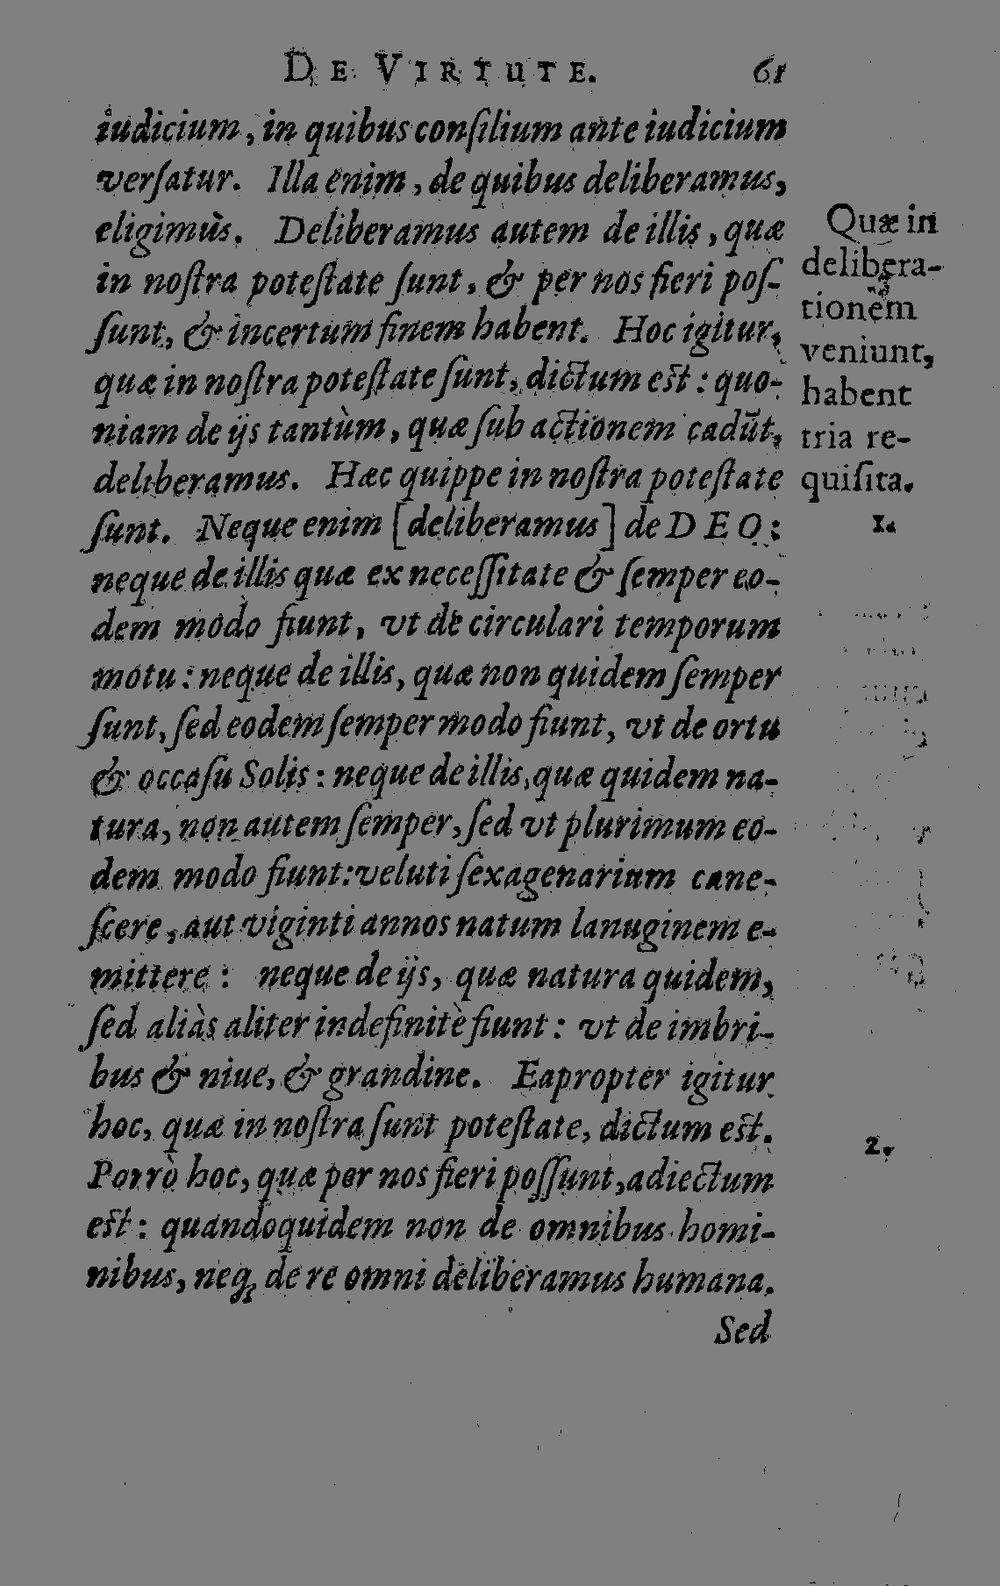 DE VIRTUTE. 61
iudicium, in quibus conſilium ante iudicium
verſatur. Illa enim, de quibus deliberamus,
eligimùs. Deliberamus autem de illis, quæ
in noſtra poteſtate ſunt, & per nos fieri poſ-
ſunt, & incertum finem habent. Hoc igitur,
quæ in noſtra poteſtate ſunt, dictum eſt: quo-
niam de ijs tantùm, quæ ſub actionem cadūt,
deliberamus. Hæc quippe in noſtra poteſtate
ſunt. Neque enim [deliberamus] de DEO:
neque de illis quæ ex neceſſitate & ſemper eo-
dem modo fiunt, vt de circulari temporum
motu: neque de illis, quæ non quidem ſemper
ſunt, ſed eodem ſemper modo fiunt, vt de ortu
& occaſu Solis: neque de illis, quæ quidem na-
tura, non autem ſemper, ſed vt plurimum eo-
dem modo fiunt: veluti ſexagenarium cane-
ſcere, aut viginti annos natum lanuginem e-
mittere: neque de ijs, quæ natura quidem,
ſed aliàs aliter indefinitè fiunt: vt de imbri-
bus & niue, & grandine. Eapropter igitur
hoc, quæ in noſtra ſunt poteſtate, dictum eſt.
Porrò hoc, quæ per nos fieri poſſunt, adiectum
eſt: quandoquidem non de omnibus homi-
nibus, neq; de re omni deliberamus humana.
Sed
Quæ in
delibera-
tionem
veniunt,
habent
tria re-
quiſita.
1.
2.